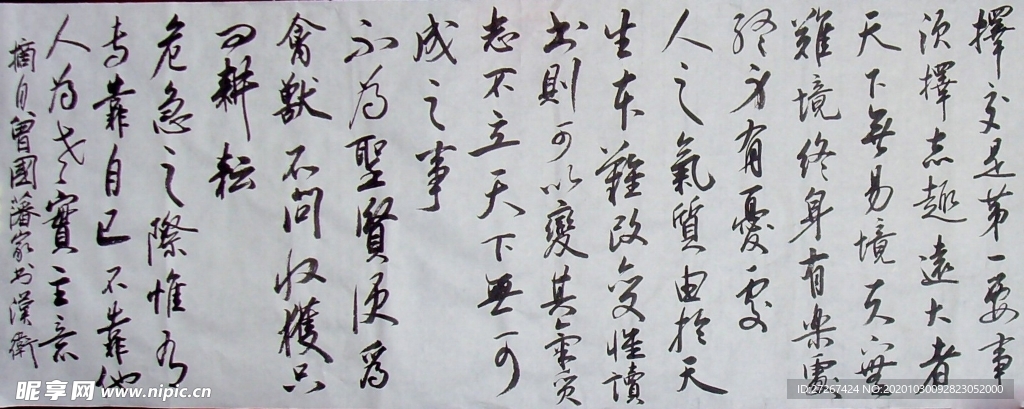 擇交是第一要事
須擇志趣遠大者
天下無易境天下無
難境終身有樂處
終身有憂處
人之氣質由於天
生本難改變惟讀
书則可以變其氣質
志不立天下無可
成之事
不為聖賢便為
禽獸不問收獲只
问耕耘
危急之際惟有
专靠自己不靠他
人為老實主意
摘自曾國藩家书漢衛
昵享网 www.nipic.cn
ID:27267424 NO:20201030092823052000